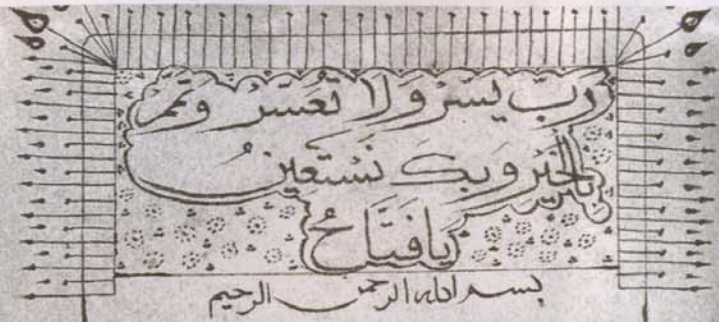 رَبِّ يَسِّرْ وَلَا تُعَسِّرْ وَتَمِّمْ
بِالْخَيْرِ وَبِكَ نَسْتَعِينُ
يَا فَتَّاحُ
بسم الله الرحمن الرحيم